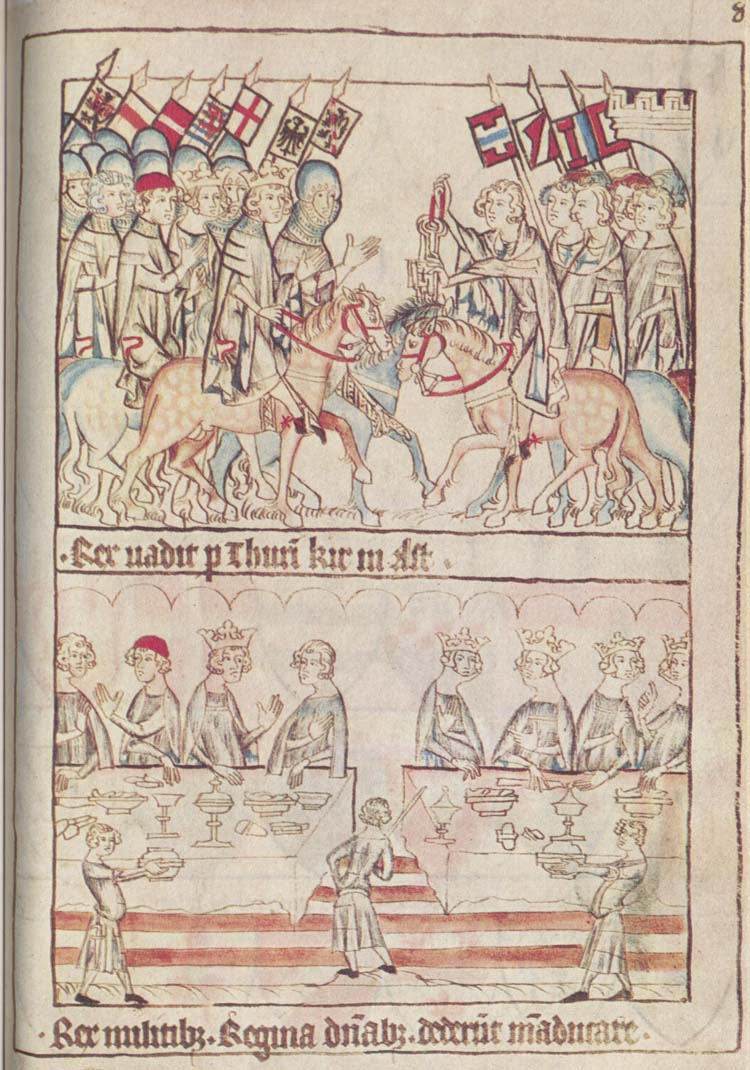 8
· Rex uadit ꝑ Thurī kir in Ast ·
· Rex militibꝫ · Regina dn̄abꝫ · dederūt māducare ·